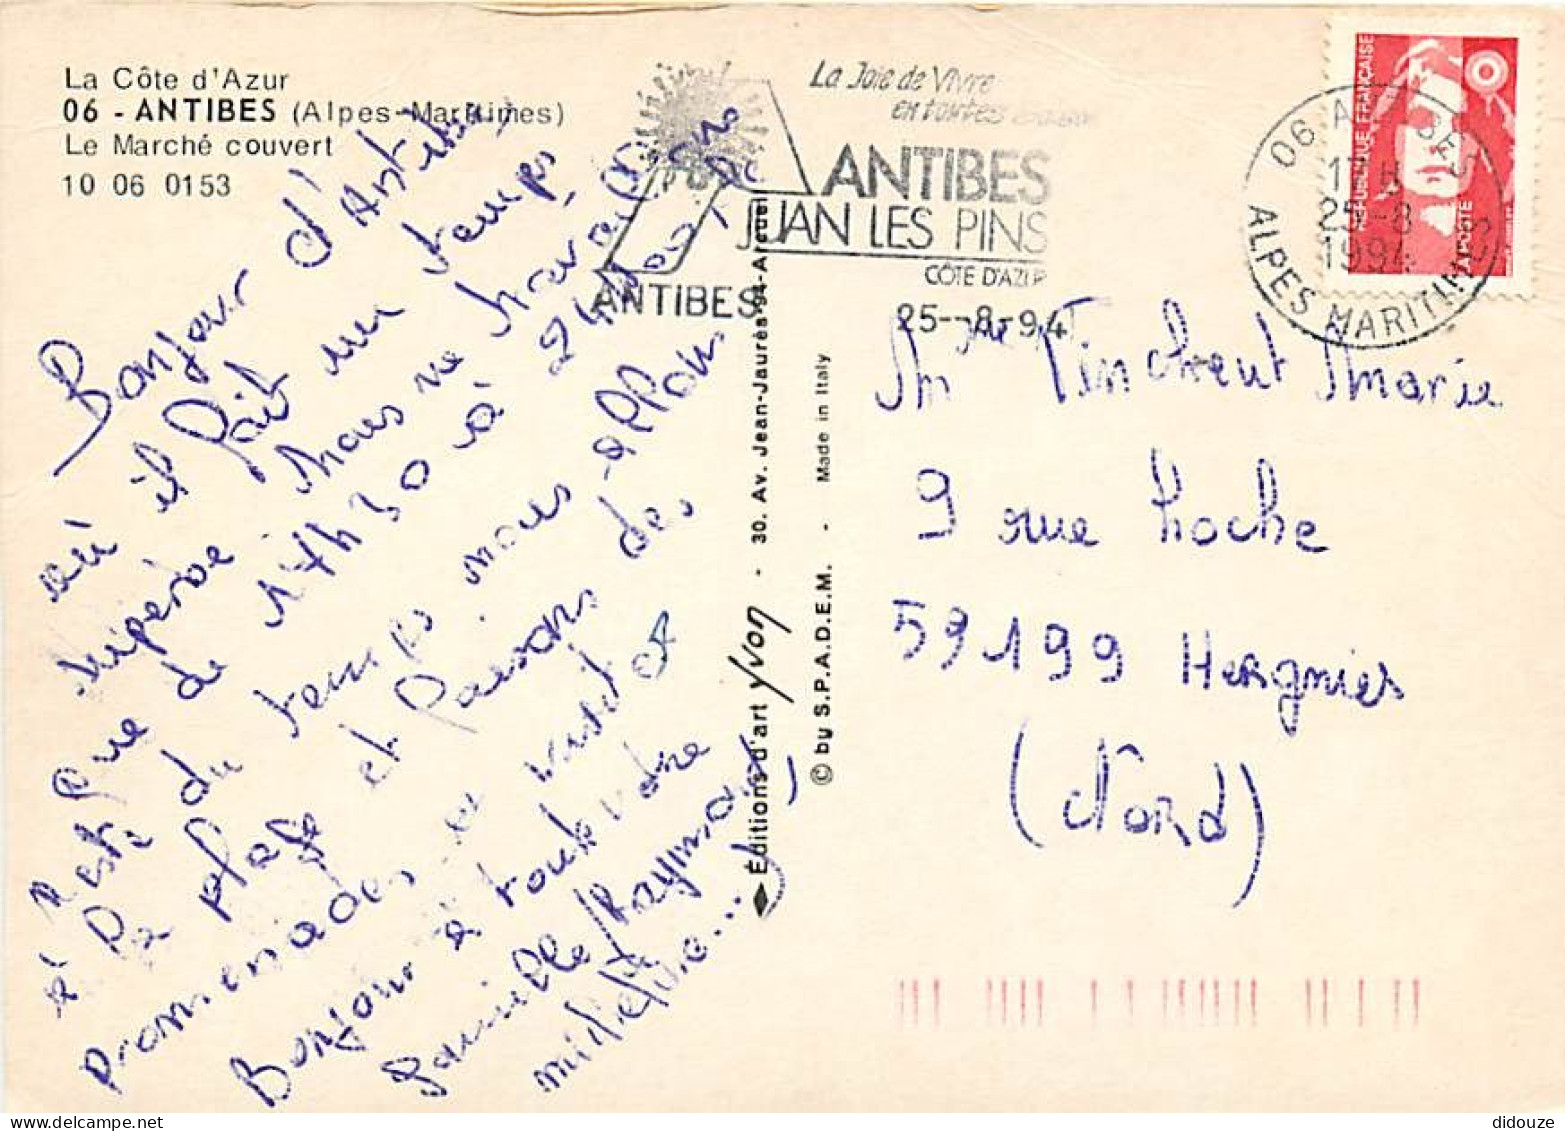 La Côte d'Azur
06 - ANTIBES (Alpes-Maritimes)
Le Marché couvert
10 06 0153
La Joie de Vivre
en toutes
ANTIBES
JUAN LES PINS
CÔTE D'AZUR
ANTIBES
25-8-94
REPUBLIQUE FRANÇAISE
LA POSTE
06 ANTIBES
17 H
25-8
1994
ALPES MARITIMES
Bonjour d'Antibes
où il fait un temps
superbe. Nous ne travaillons
que de 14h30 à 24h00, le
reste du temps nous allons
à la plage et faisons des
promenades visite et
Bonjour à toute votre
famille Raymond
Éditions d'art Yvon - 30. Av. Jean-Jaurès 94-Arcueil
© by S.P.A.D.E.M. - Made in Italy
Mme Marie
9 rue hoche
59199 Hergnies
(Nord)
didouze